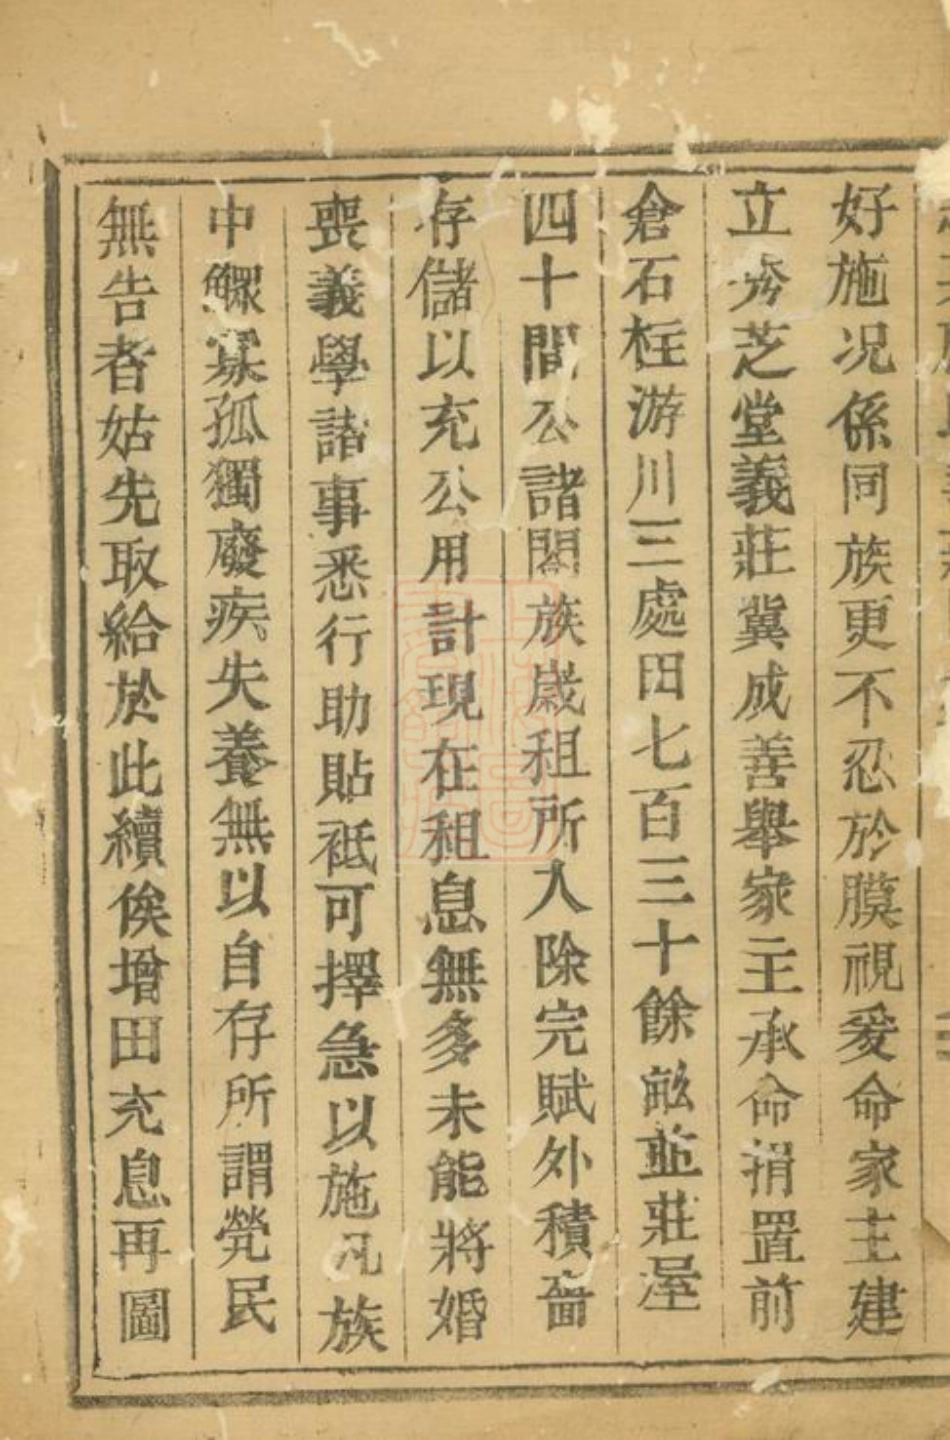 好施况係同族更不忍於膜視爰命家主建
立秀芝堂義莊冀成善舉家主承命捐置前
倉石柱游川三處田七百三十餘畆並莊屋
四十間公諸閤族歲租所入除完賦外積啬
存儲以充公用計現在租息無多未能將婚
喪義學諸事悉行助貼祗可擇急以施凡族
中鰥寡孤獨廢疾失養無以自存所謂煢民
無告者姑先取給於此續俟增田充息再圖